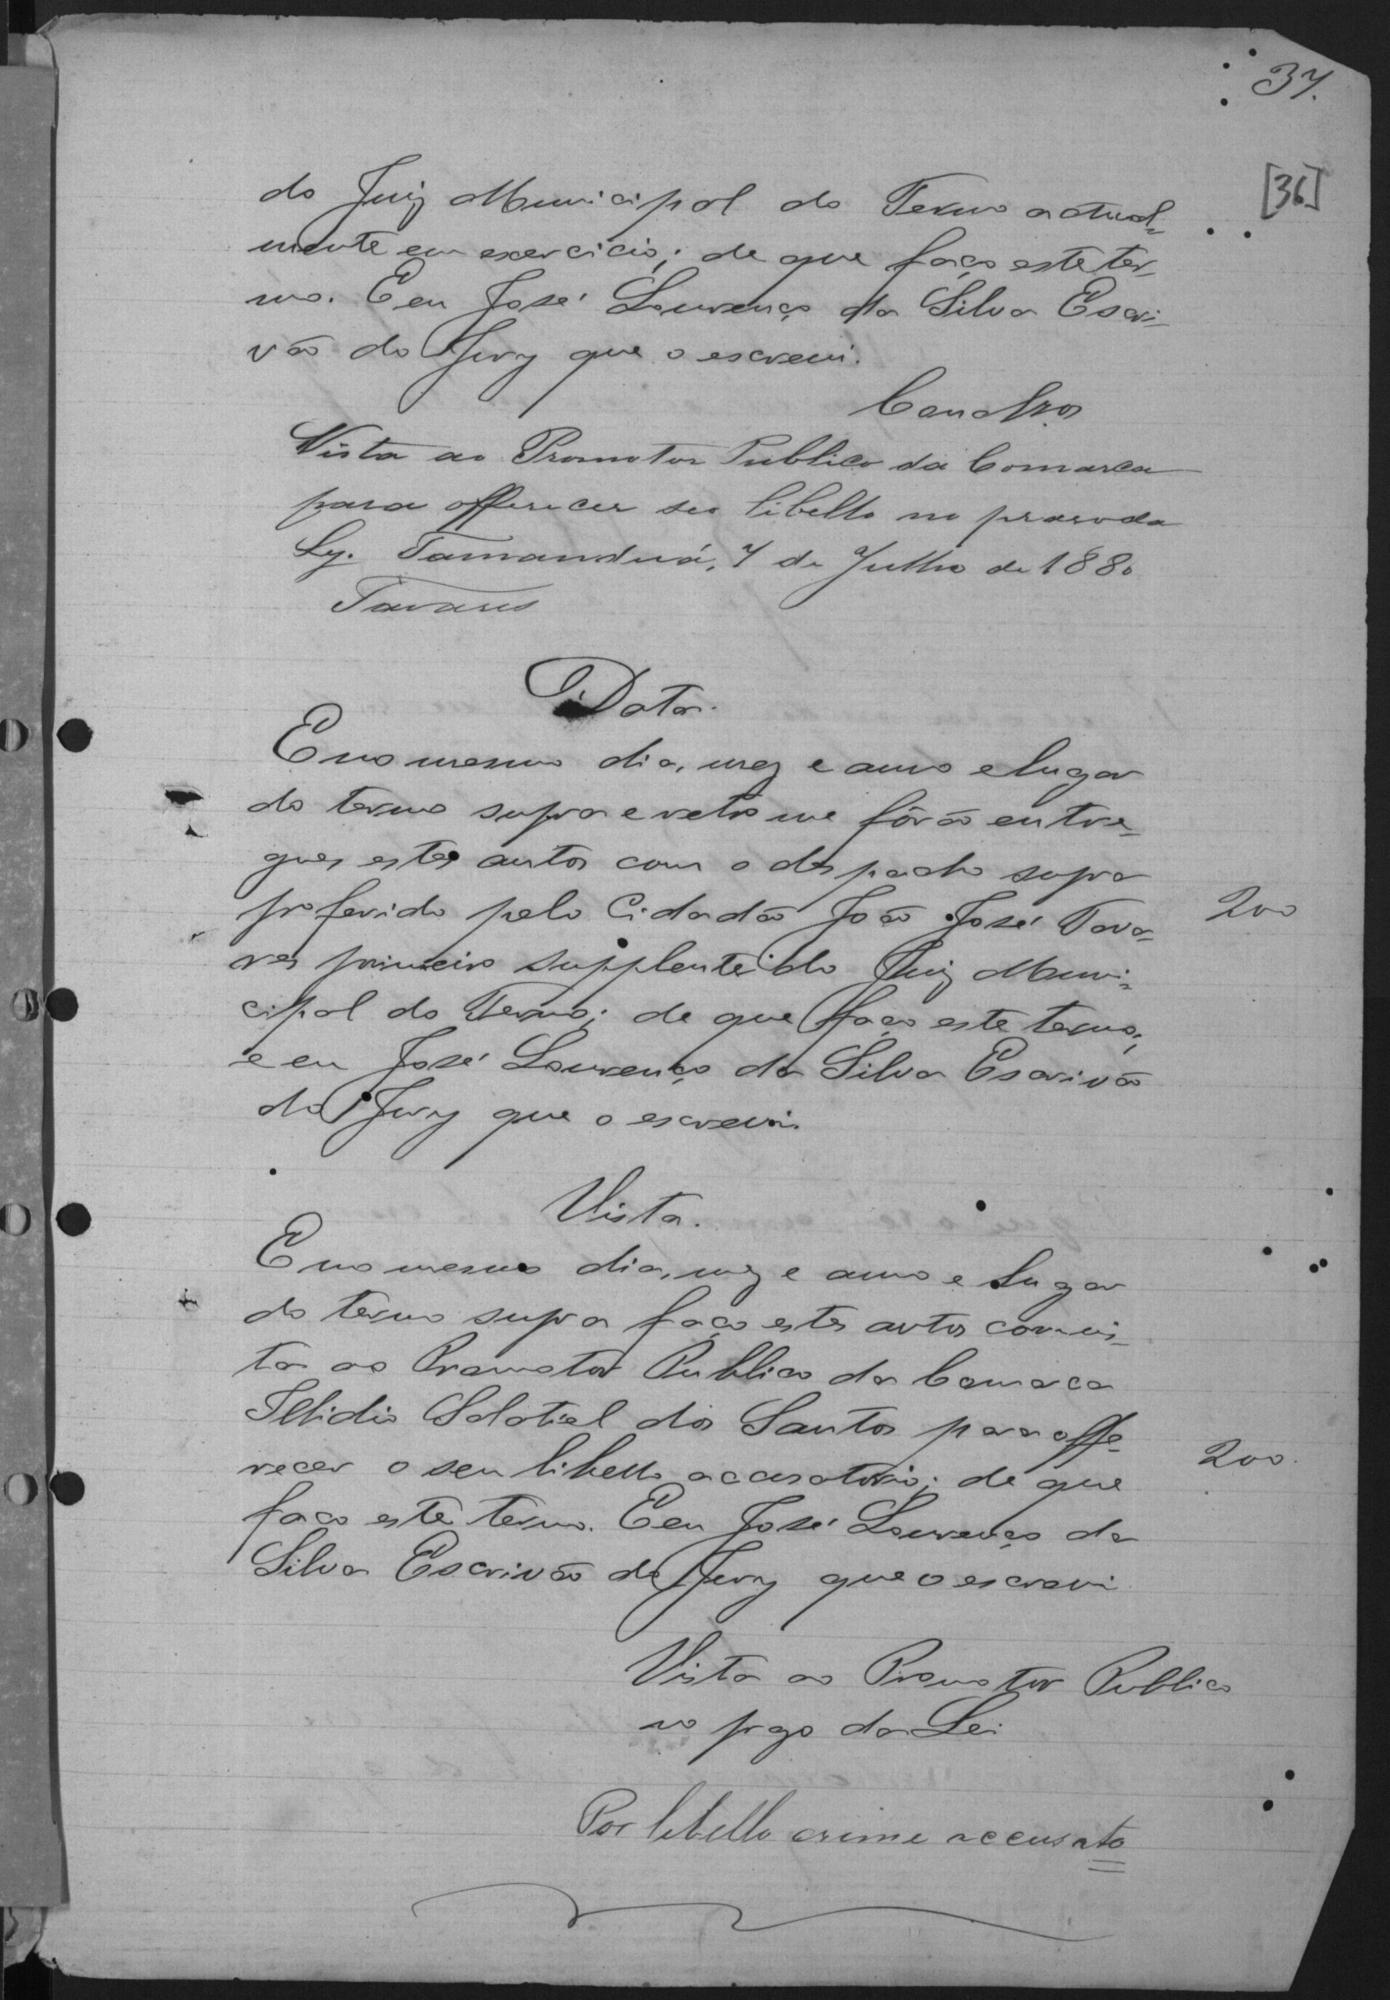 37.
[36]
do Juiz Municipal do Termo actual=
mente em exercicio; de que faço este ter-
mo. E eu José Lourenço da Silva Escri-
vão do Jury que o escrevi.
Conclzos
Vista ao Promotor Publico da Comarca
para offerecer seo libello no praso da
Ley. Tamanduá, 7 de Julho de 1880
Tavares
Data.
E no mesmo dia, mez e anno e lugar
do termo supra e retro me fôrão entre-
gues estes autos com o despacho supra
proferido pelo Cidadão João José Tava-
res primeiro supplente do Juiz Muni-
cipal do Termo; de que faço este termo,
e eu José Lourenço da Silva Escrivão
do Jury que o escrevi.
200
Vista.
E no mesmo dia, mez e anno e lugar
do termo supra faço estes autos com vis-
ta ao Promotor Publico da Comarca
Ilidio Salatiel dos Santos para offe-
recer o seu libello accusatorio; de que
faco este termo. E eu José Lourenço da
Silva Escrivão do Jury que o escrevi
200.
Vista ao Promotor Publico
no pzo da Lei
Por libello crime accusato